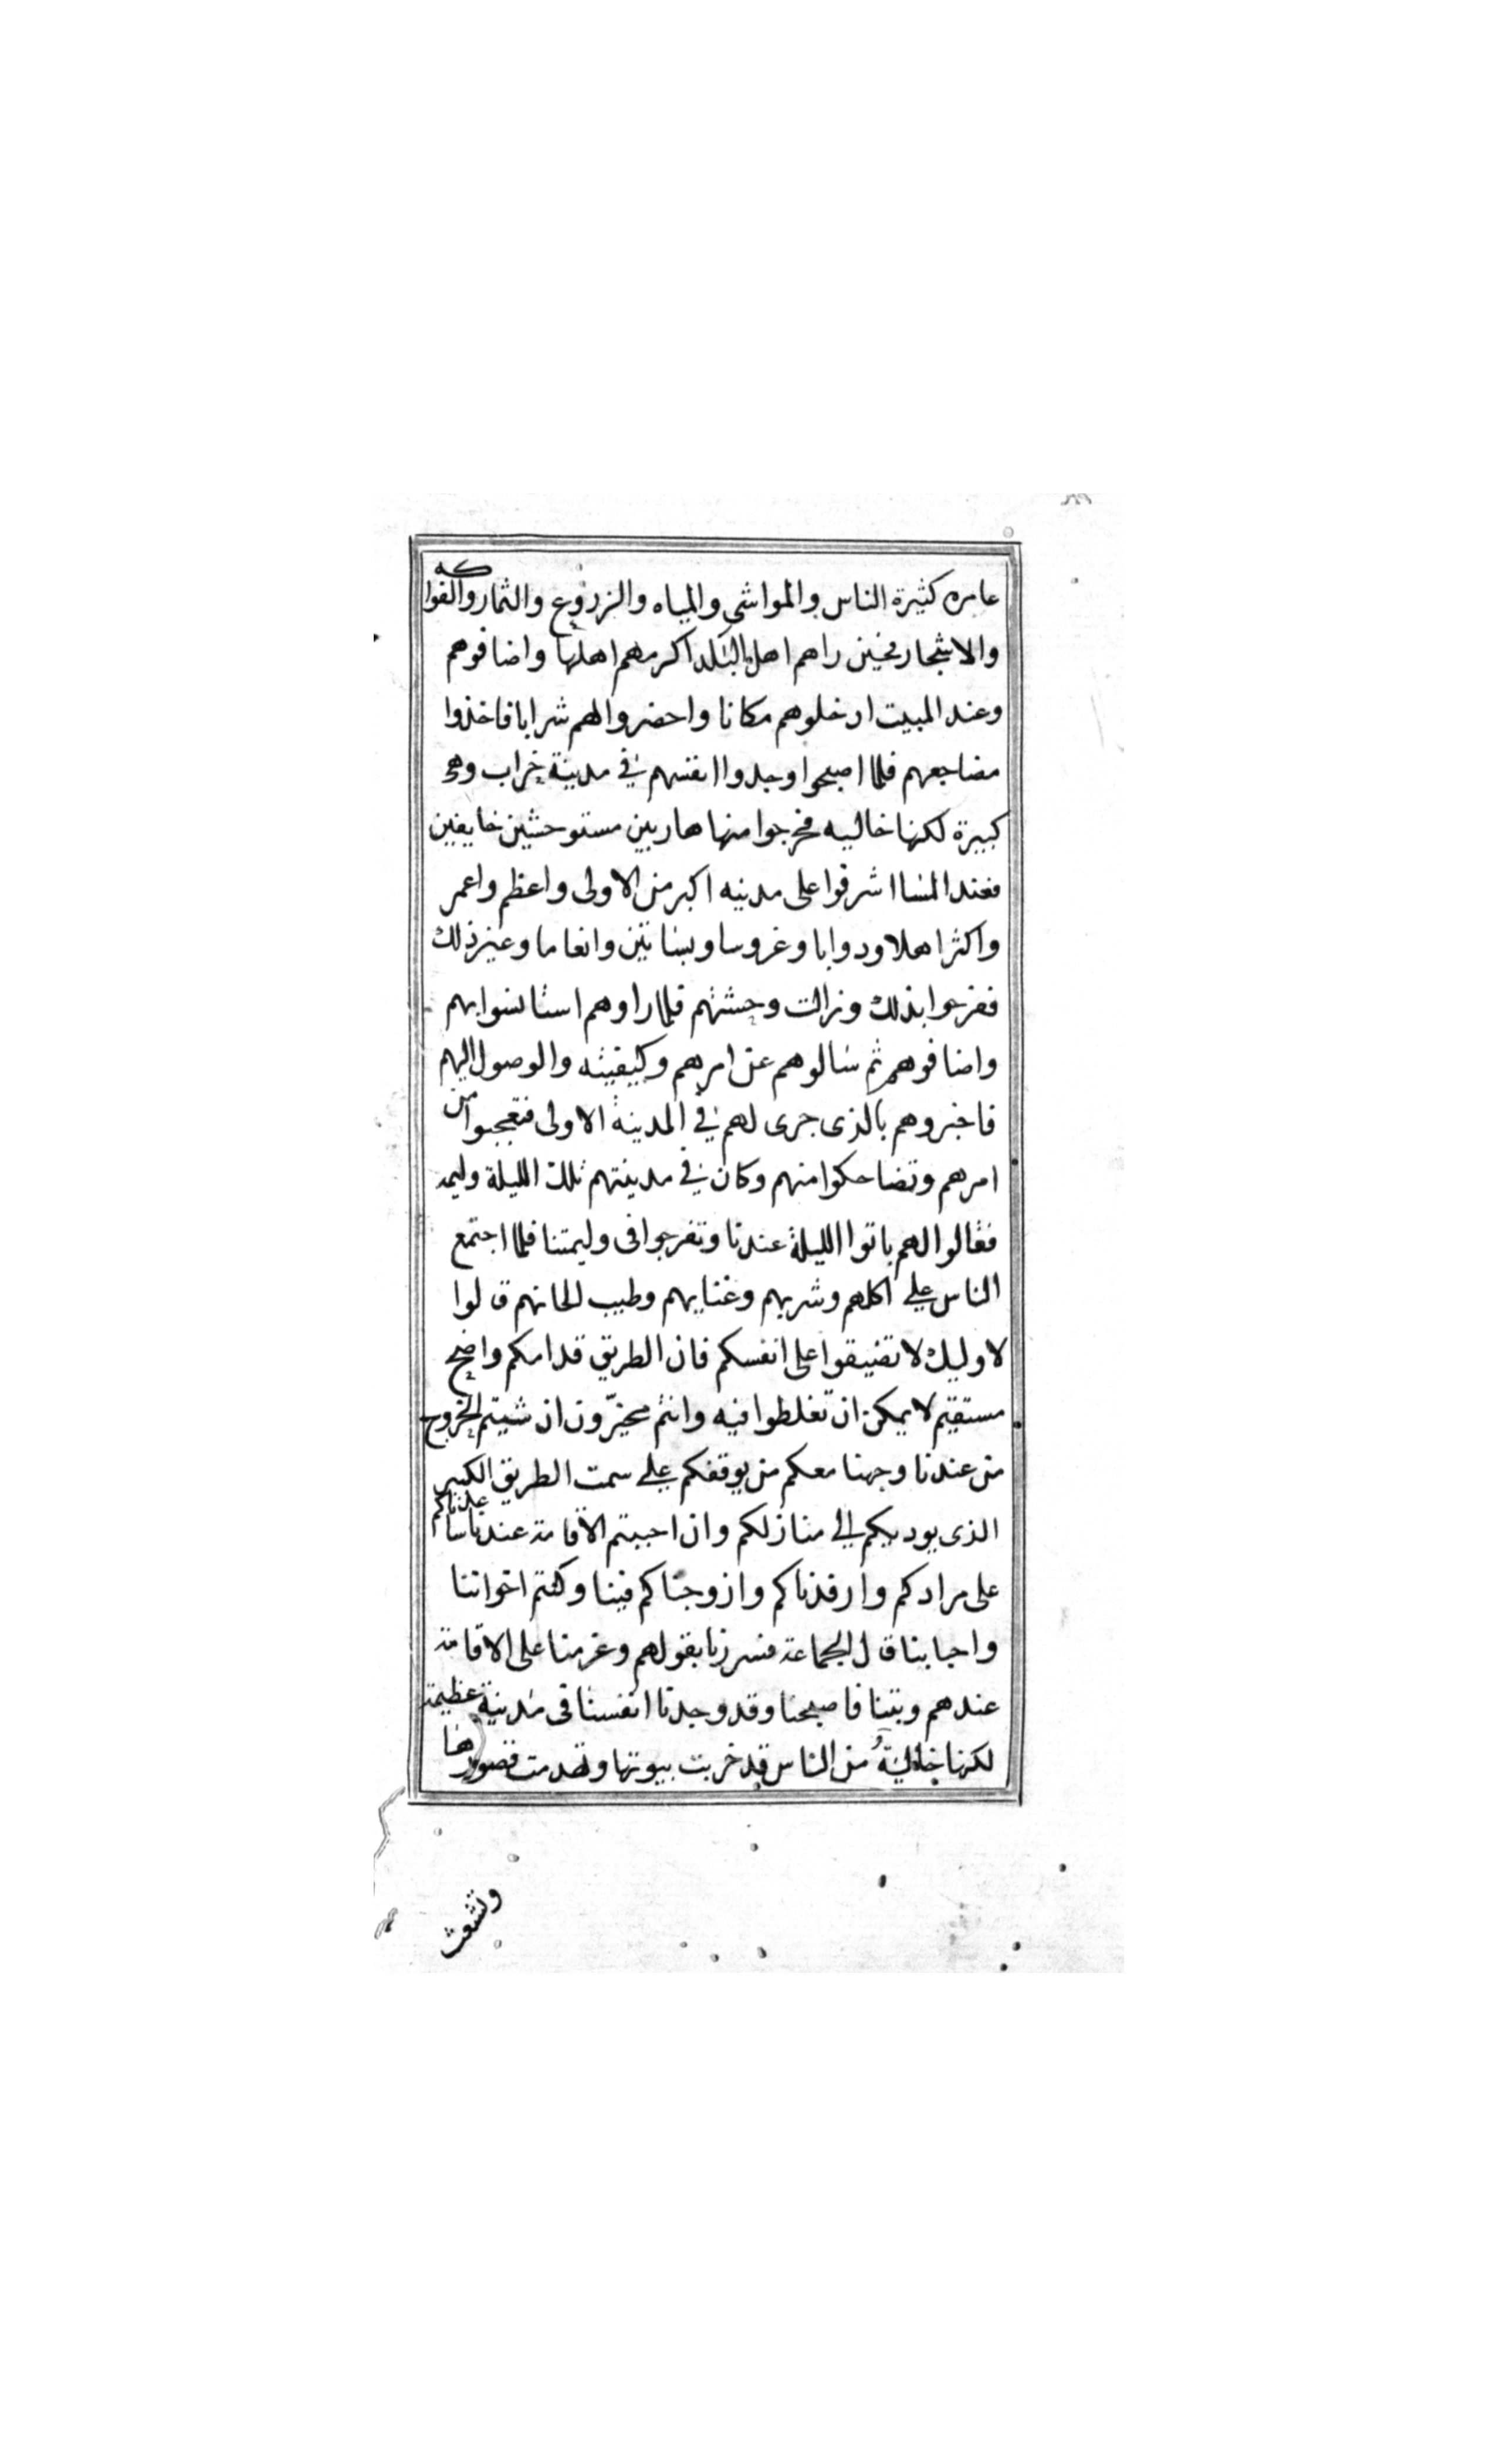 عامره كثيرة الناس والمواشي والمياه والزروع والثمار والفواكه
والاشجار فحين راهم اهل البلد اكرمهم اهلها واضافوهم
وعند المبيت ادخلوهم مكانا واحضروا لهم شرابا فاخذوا
مضاجعهم فلما اصبحوا وجدوا انفسهم في مدينة خراب وهى
كبيرة لكنها خاليه فخرجوا منها هاربين مستوحشين خايفين
فعند المسا اشرفوا على مدينه اكبر من الاولى واعظم واعمر
واكثر اهلا ودوابا وغروسا وبساتين وانعاما وغير ذلك
ففرحوا بذلك وزالت وحشتهم فلما راوهم استانسوا بهم
واضافوهم ثم سالوهم عن امرهم وكيفيته والوصول اليهم
فاخبروهم بالذى جرى لهم في المدينة الاولى فتعجبوا من
امرهم وتضاحكوا منهم وكان في مدينتهم تلك الليلة وليمه
فقالوا لهم باتوا الليلة عندنا وتفرجوا فى وليمتنا فلما اجتمع
الناس على اكلهم وشربهم وغنايهم وطيب الحانهم قالوا
لاوليك لا تضيقوا على انفسكم فان الطريق قدامكم واضح
مستقيم لا يمكن ان تغلطوا فيه وانتم مخيّرون ان شيتم الخروج
من عندنا وجهنا معكم من يوقفكم على سمت الطريق الكبير
الذى يوديكم الى منازلكم وان احببتم الاقامة عندنا ساعدناكم
على مرادكم وارفدناكم وازوجناكم فينا وكنتم اخواننا
واحبابنا قال الجماعة فسررنا بقولهم وعزمنا على الاقامة
عندهم وبتنا فاصبحنا وقد وجدنا انفسنا فى مدينة عظيمة
لكنها خالية من الناس قد خربت بيوتها وتهدمت قصورها
وتشعث